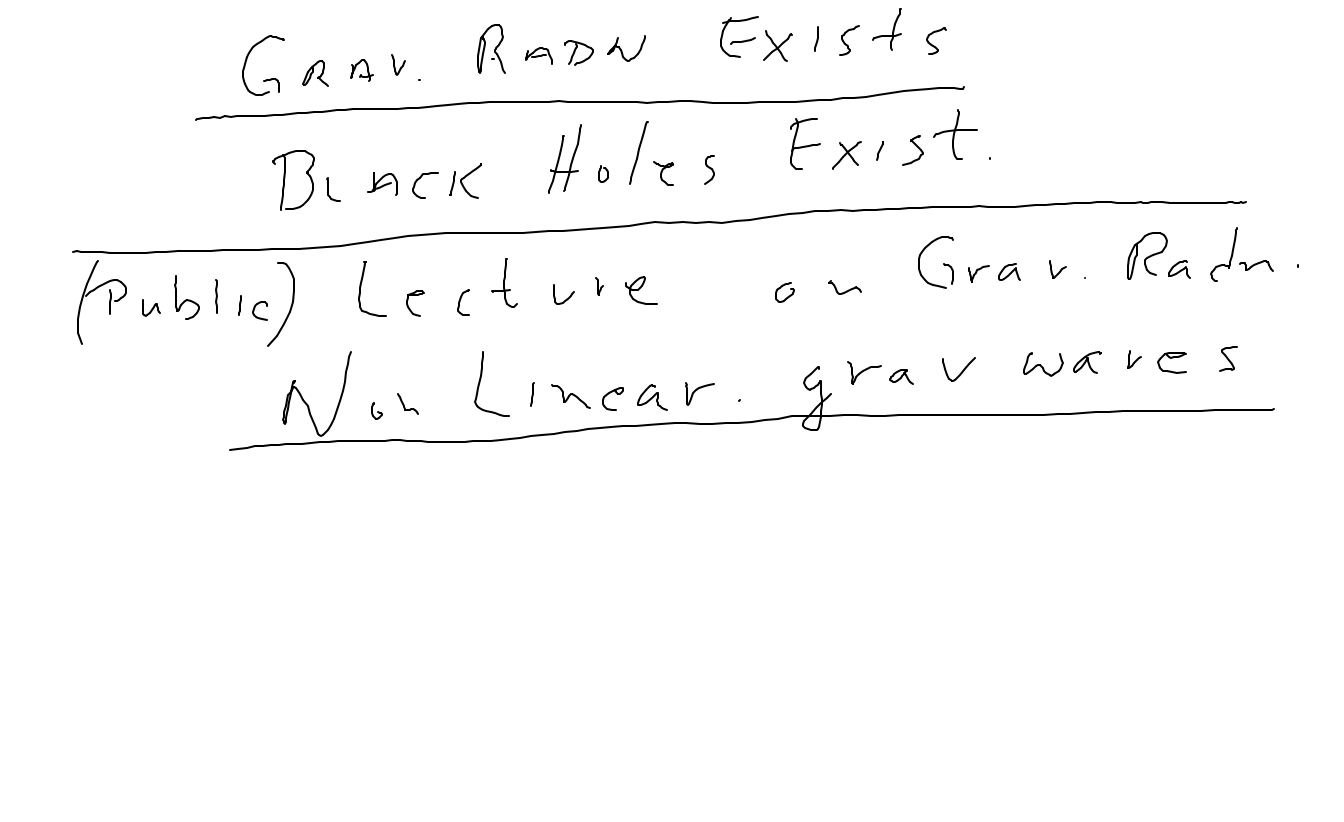 GRAV. RADN Exists
BLACK Holes Exist.
(Public) Lecture on Grav. Radn.
Non Linear. grav waves